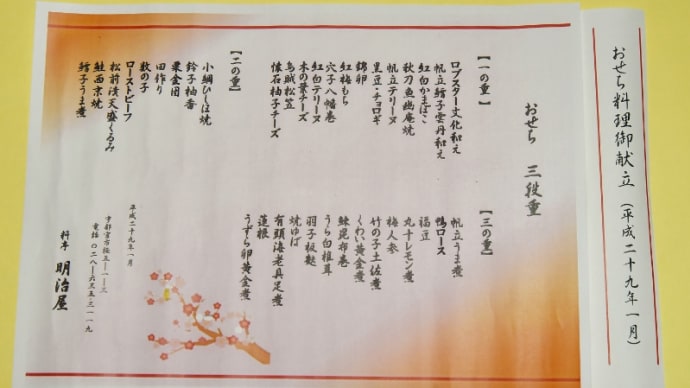 おせち料理御献立（平成二十九年一月）
おせち 三段重
【一の重】
ロブスター文化和え
帆立鱈子雲丹和え
紅白かまぼこ
秋刀魚幽庵焼
帆立テリーヌ
黒豆・チョロギ
錦卵
紅梅もち
穴子八幡巻
紅白テリーヌ
木の葉チーズ
烏賊松笠
懐石柚子チーズ
【二の重】
小鯛ひしほ焼
鈴子柚香
栗金団
田作り
数の子
ローストビーフ
松前漬天盛くるみ
鮭西京焼
鱈子うま煮
【三の重】
帆立うま煮
鴨ロース
福豆
丸十レモン煮
梅人参
竹の子土佐煮
くわい黄金煮
鰊昆布巻
うら白椎茸
羽子板麩
焼ゆば
有頭海老具足煮
蓮根
うずら卵黄金煮
平成二十九年一月
料亭 明治屋